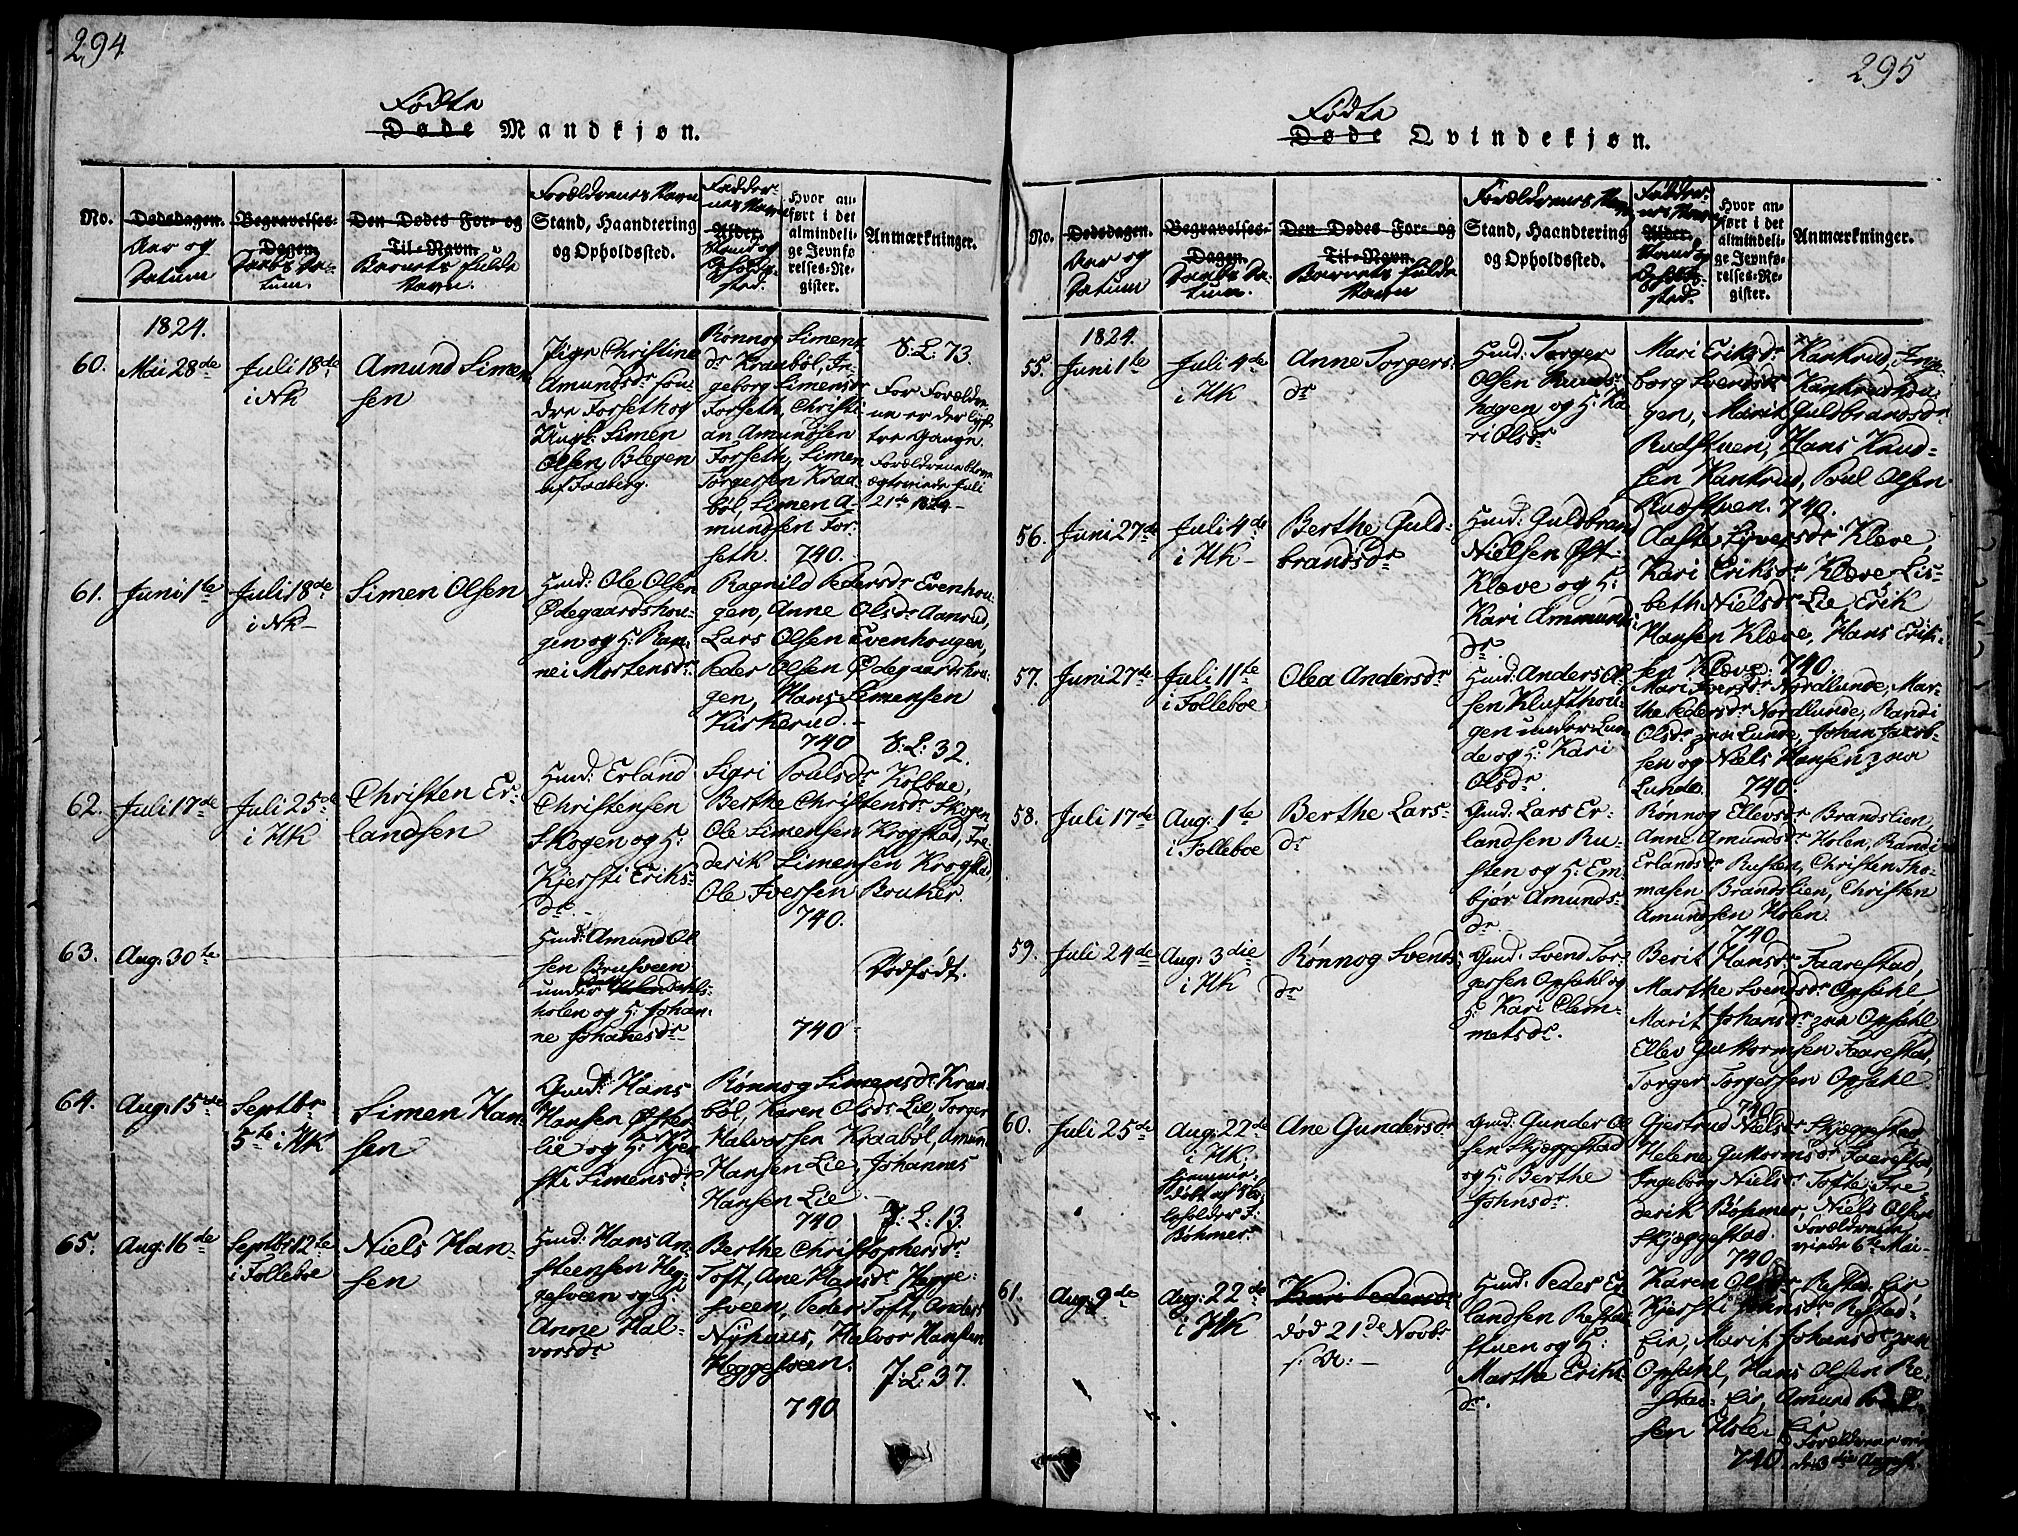 294
Fødte
Døde Mandkjøn.
No.
Dødsdagen.
Aar og
Datum
Begravelses-
Dagen.
Daabs Da-
tum.
Den Dødes For- og
Til-Navn.
Barnets fulde
Navn.
Forældrenes Navn
Stand, Haandtering
og Opholdssted.
Fadder-
nes Navn
Alder.
Stand og
Opholds-
sted.
Hvor an-
ført i det
almindeli-
ge Jevnfø-
relses-Re-
gister.
Anmærkninger.
1824.
60.
Mai 28de
Juli 18de
i NK
Amund Simen-
sen
Pige Christine
Amundsdr søn-
dre Forseth og
Ungk: Simen
Olsen Blegen
af Faaberg.
Rønnog Simens
dr Kraabøl, In-
geborg Simensdr
Forseth, Christi-
an Amundsen
Forseth, Simen
Torgersen Kraa-
bøl, Simen A-
mundsen For-
seth. 740.
S: L: 73.
For Forældre-
ne er det
Gange.
Forældrene bleve
ægteviede Juli
21de 1824
61.
Juni 1te
Juli 18de
i NK
Simen Olsen
Hmd: Ole Olsen
Ødegaardshou-
gen og H: Ran-
nei Mortensdr
Ragnild Pedersdr Evenhou-
gen, Anne Olsdr Aanrud,
Lars Olsen Evenhougen,
Peder Olsen Ødegaardshou-
gen, Hans Simensen
Kirkerud.
740
S: L: 32.
62.
Juli 17de
Juli 25de
i HK
Christen Er-
landsen
Hmd: Erland
Christensen
Skogen og H:
Kjersti Eriks-
dr
Sigri Poulsdr Kolboe,
Berthe Christensdr Skogen
Ole Simensen Krogstad, Fre-
derik Simensen Krogstad,
Ole Iversen Bouker.
740.
63.
Aug: 30te
Hmd: Amund Ol-
sen Brusveen
under
holen og H: Johan-
ne Johanesdr
740
Dødfødt.
64.
Aug: 15de
Septbr
5te i HK
Simen Han-
sen
Gmd: Hans
Hansen Øster-
lie og H: Kjer-
sti Simensdr
Rønnog Simensdr Kraa-
bøl, Karen Olsdr Lie, Torger
Halvorsen Kraabøl, Amun
Hansen Lie, Johannes
Hansen Lie
740
J: L: 13.
65.
Aug: 16de
Septbr 12te
i Følleboe
Niels Han-
sen
Hmd: Hans An-
steensen Heg-
gesveen og H:
Anne Hal-
vorsdr
Berthe Christophersdr
Toft, Ane Hansdr Hegge-
sveen, Peder Toft, Anders
Nyhaus, Halvor Hansen
Heggesveen.
740
J: L: 37.
295
Fødte
Døde Qvindekjøn.
No.
Dødsdagen.
Aar og
Datum
Begravelses-
Dagen.
Daabs Da-
tum.
Den Dødes For- og
Til-Navn.
Barnets fulde
Navn
Forældrenes Navn
Stand, Haandtering
og Opholdssted.
Fadder-
nes Navn
Alder.
Stand og
Opholds-
sted.
Hvor an-
ført i det
almindeli-
ge Jevnfø-
relses-Re-
gister.
Anmærkninger.
1824.
55.
Juni 1te
Juli 4de
i HK
Anne Torgers-
dr
Hmd: Torger
Olsen Runds-
hagen og H: Ka-
ri Olsdr
Mari Eriksdr Kankrud, Inge-
borg Svendsdr
gen, Marit Guldbrandsdr
Rudstuen, Hans Knud-
sen Kankrud, Poul Olsen
Rudstuen. 740.
56.
Juni 27de
Juli 4de
i HK
Berthe Guld-
brandsdr
Hmd: Guldbrand
Nielsen Øst-
Kleve og H:
Kari Ammunds-
dr
Aaste Eyversdr Kleve
Kari Eriksdr Kleve, Lis-
beth Nielsdr Lie, Erik
Hansen Kleve, Hans Erik-
sen Kleve. 740.
57.
Juni 27de
Juli 11te
i Følleboe
Olea Andersdr
Hmd: Anders Ol-
sen Klufthou-
gen under Lun-
de og H: Kari
Olsdr.
Mari Iversdr Nordlunde, Mar-
the Pedersdr Nordlunde, Randi
Olsdr paa Lunde, Johan Jacob-
sen og Niels Hansen paa
Lunde. 740.
58.
Juli 17de
Aug: 1te
i Følleboe
Berthe Lars-
dr
Gmd: Lars Er-
landsen Ru-
sten og H: Em-
bjør Amunds-
dr
Rønnog Ellevsdr Brandslien,
Anne Amundsdr Holen, Randi
Erlandsdr Rusten, Christen Tho-
masen Brandslien, Christen
Amundsen Holen.
740
59.
Juli 24de
Aug: 3die
i HK
Rønnog Svends-
dr
Gmd: Svend Tor-
gersen Opsahl og
H: Kari Clem-
metsdr.
Berit Hansdr Faarestad,
Marthe Svendsdr Opsahl,
Marit Johansdr paa Opsahl,
Ellev Guttormsen Faarestad,
Torger Torgersen Opsahl
740
60.
Juli 25de
Aug: 22de
i HK,
hjemme-
døbt af
beholder F:
Bøhmer
Ane Gundersdr
Gmd: Gunder Ol-
sen Skjæggestad
og H: Berthe
Johnsdr
Gjertrud Nielsdr Skjæggestad
Helene Guttormsdr Faarestad,
Ingeborg Nielsdr Tofte, Fre-
derik Bøhmer, Niels Olsen
Skjæggestad.
740
Forældrene
viede 6te Mai-
61.
Aug: 9de
Aug: 22de
i HK
Kari Pedersdr
død 21de Novbr
s: A:
Hmd: Peder Er-
landsen Restad-
stuen og H:
Marthe Eriks-
dr.
Karen Olsdr Restad Eir,
Kjersti Johnsdr Rystad-
Eir, Marit Johansdr paa
Opsahl, Hans Olsen Re-
stad Eir, Amund
sen Hole
740.
Forældrene vie-
de 3die August.